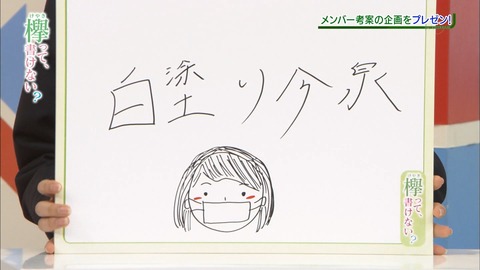 欅って、書けない?
けやき
メンバー考案の企画をプレゼン!
白塗り今泉
欅って、書けない?
けやき